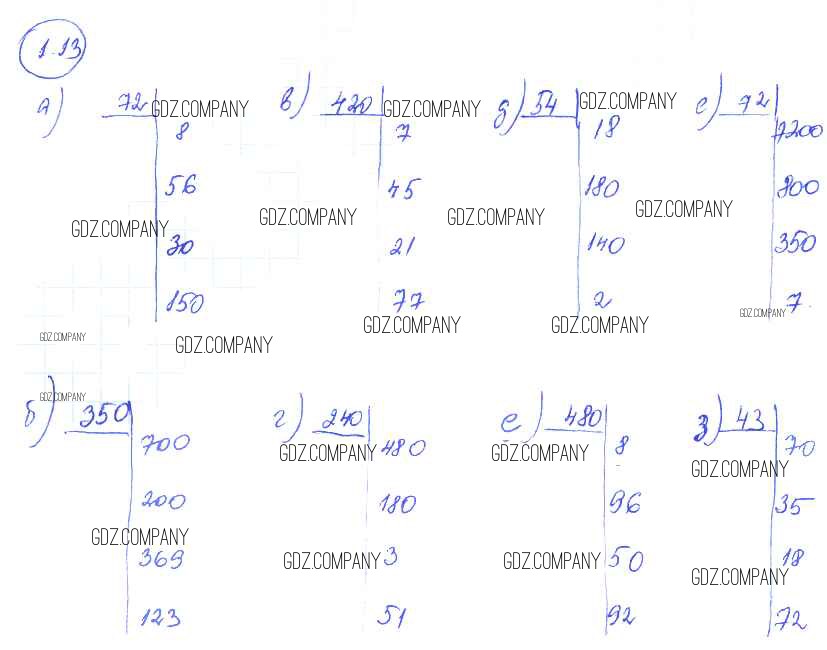 1.13
а) 72 GDZ.COMPANY в) 420 GDZ.COMPANY д) 54 GDZ.COMPANY е) 72
8 7 18 7200
56 45 180 800
GDZ.COMPANY GDZ.COMPANY GDZ.COMPANY GDZ.COMPANY
30 21 140 350
150 77 2 7
GDZ.COMPANY GDZ.COMPANY GDZ.COMPANY GDZ.COMPANY GDZ.COMPANY
GDZ.COMPANY
б) 350 г) 240 е) 480 з) 43
700 GDZ.COMPANY 480 GDZ.COMPANY 8 70
GDZ.COMPANY
200 180 96 35
GDZ.COMPANY
369 GDZ.COMPANY 3 GDZ.COMPANY 50 18
GDZ.COMPANY
123 51 92 72